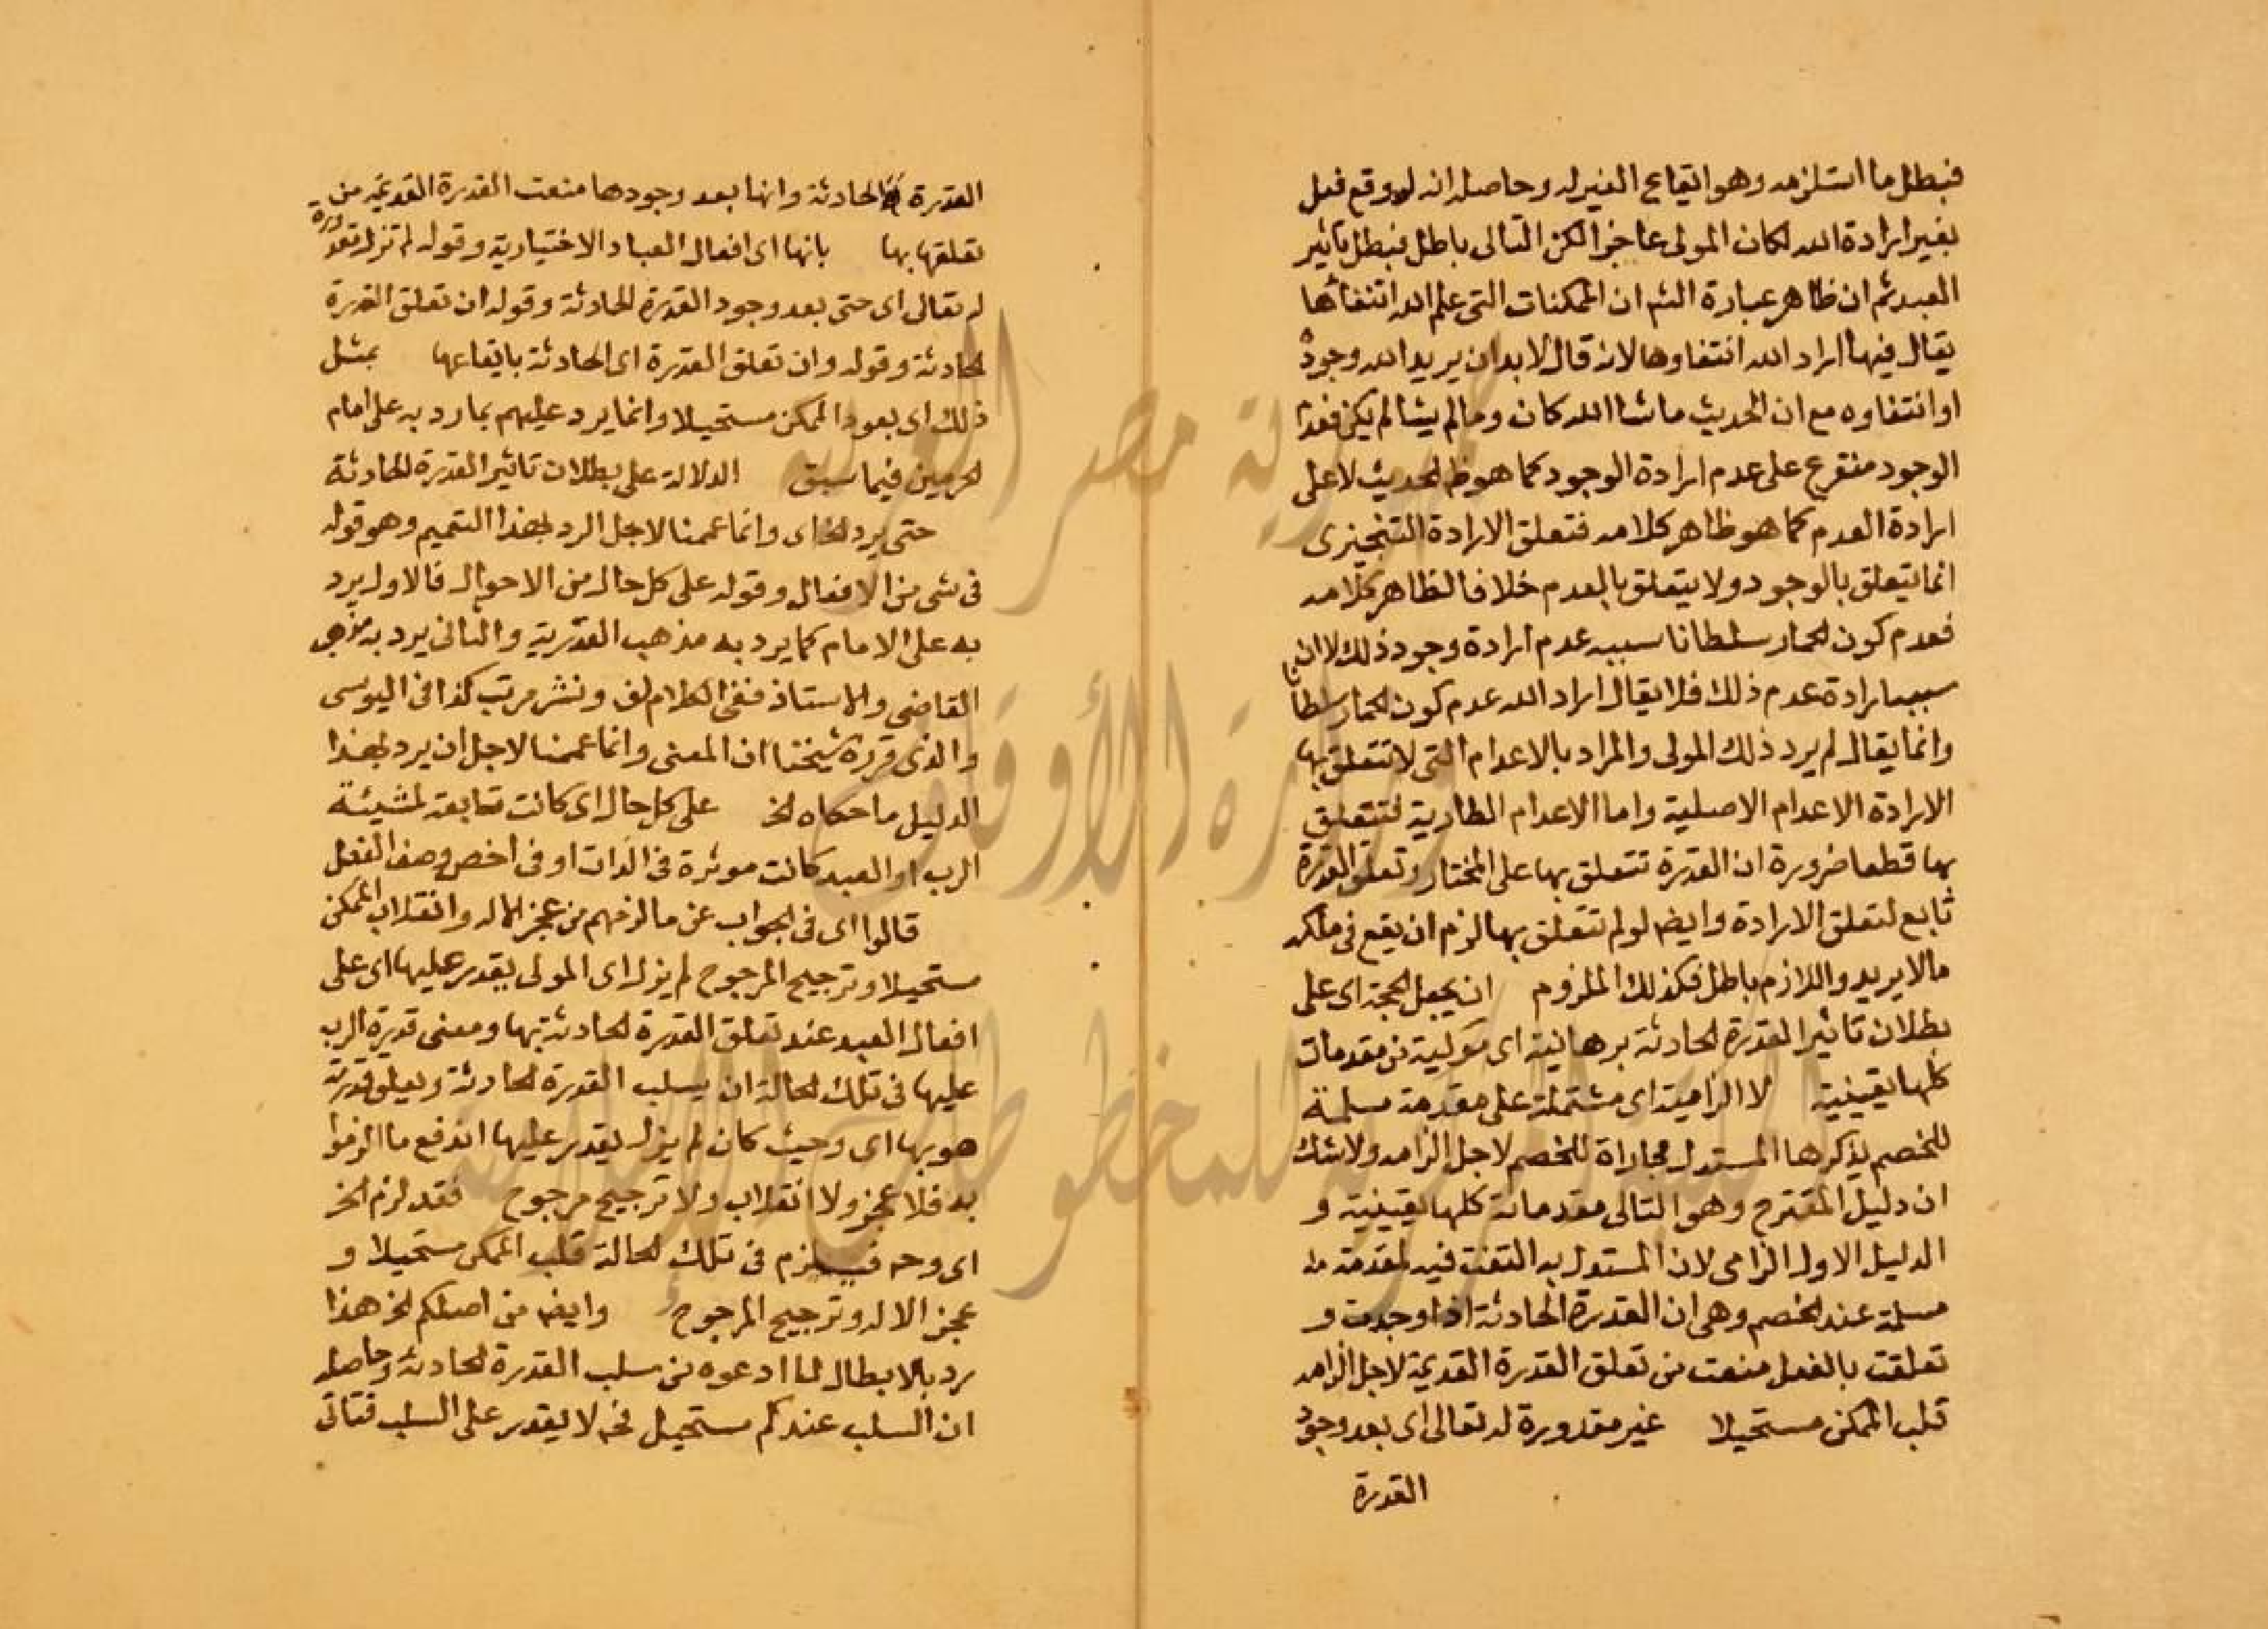 فبطل ما استلزمه وهو ايقاع الغير له وحاصله انه لو وقع فعل
بغير ارادة الله لكان المولى عاجزا لكن التالى باطل فبطل تاثير
العبد ثم ان ظاهر عبارة الشم ان الممكنات التى علم الله انتفاءها
يقال فيها اراد الله انتفاوها لانه قال لا بد ان يريد الله وجوده
او انتفاوه مع ان الحديث ما شا الله كان وما لم يشا لم يكن فعدم
الوجود متفرع على عدم ارادة الوجود كما هو ظ الحديث لا على
ارادة العدم كما هو ظاهر كلامه فتعلق الارادة التنجيزى
انما يتعلق بالوجود ولا يتعلق بالعدم خلافا لظاهر كلامه
فعدم كون الحمار سلطانا سببه عدم ارادة وجود ذلك لا ان
سببه ارادة عدم ذلك فلا يقال اراد الله عدم كون الحمار سلطانا
وانما يقال لم يرد ذلك المولى والمراد بالاعدام التى لا تتعلق بها
الارادة الاعدام الاصلية واما الاعدام الطارية فتتعلق
بها قطعا ضرورة ان القدرة تتعلق بها على المختار وتعلق القدرة
تابع لتعلق الارادة وايض لو لم تتعلق بها لزم ان يقع فى ملكه
ما لا يريد واللازم باطل فكذلك الملزوم ان يجعل الحجة اى على
بطلان تاثير القدرة الحادثة برهانية اى مركبة من مقدمات
كلها يقينية لا الزامية اى مشتملة على مقدمة مسلمة
للخصم يذكرها المستدل مجاراة للخصم لاجل الزامه ولا شك
ان دليل المقترح وهو التالى مقدماته كلها يقينية و
الدليل الاول الزامى لان المستدل به التفت فيه لمقدمة
مسلمة عند الخصم وهى ان القدرة الحادثة اذا وجدت و
تعلقت بالفعل منعت من تعلق القدرة القديمة لاجل الزامه
قلب الممكن مستحيلا غير مقدورة له تعالى اى بعد وجود
القدرة
القدرة الحادثة وانها بعد وجودها منعت القدرة القديمة من
تعلقها بها بانها اى افعال العباد الاختيارية وقوله لم تزل مقدورة
له تعالى اى حتى بعد وجود القدرة الحادثة وقوله ان تعلق القدرة
الحادثة وقوله وان تعلق القدرة اى الحادثة بايقاعها بمثل
ذلك اى بعود الممكن مستحيلا وانما يرد عليهم بما رد به على امام
الحرمين فيما سبق الدلالة على بطلان تاثير القدرة الحادثة
حتى يرد الخ اى وانما عممنا لاجل الرد بهذا التعميم وهو قوله
فى شى من الافعال وقوله على كل حال من الاحوال فالاول يرد
به على الامام كما يرد به مذهب القدرية والثانى يرد به مذهبى
القاضى والاستاذ ففى الكلام لف ونشر مرتب كذا فى اليوسى
والذى قرره شيخنا ان المعنى وانما عممنا لاجل ان يرد بهذا
الدليل ما حكاه الخ على كل حال اى كانت تابعة لمشيئة
الرب او العبد كانت موثرة فى الذات او فى اخص وصف الفعل
قالوا اى فى الجواب عن ما لزمهم من عجز الاله وانقلاب الممكن
مستحيلا وترجيح المرجوح لم يزل اى المولى يقدر عليها اى على
افعال العبد عند تعلق القدرة الحادثة بها ومعنى قدرة الرب
عليها فى تلك الحالة ان يسلب القدرة الحادثة ويعلق قدرته
هو بها اى وحيث كان لم يزل يقدر عليها اندفع ما الزموا
به فلا عجز ولا انقلاب ولا ترجيح مرجوح فقد لزم الخ
اى وح فيلزم فى تلك الحالة قلب الممكن مستحيلا و
عجز الاله وترجيح المرجوح وايض من اصلكم الخ هذا
رد بالابطال لما ادعوه من سلب القدرة الحادثة وحاصله
ان السلب عندكم مستحيل فح لا يقدر على السلب فتاتى
جمهورية مصر العربية
وزارة الأوقاف
المكتبة المركزية للمخطوطات الإسلامية